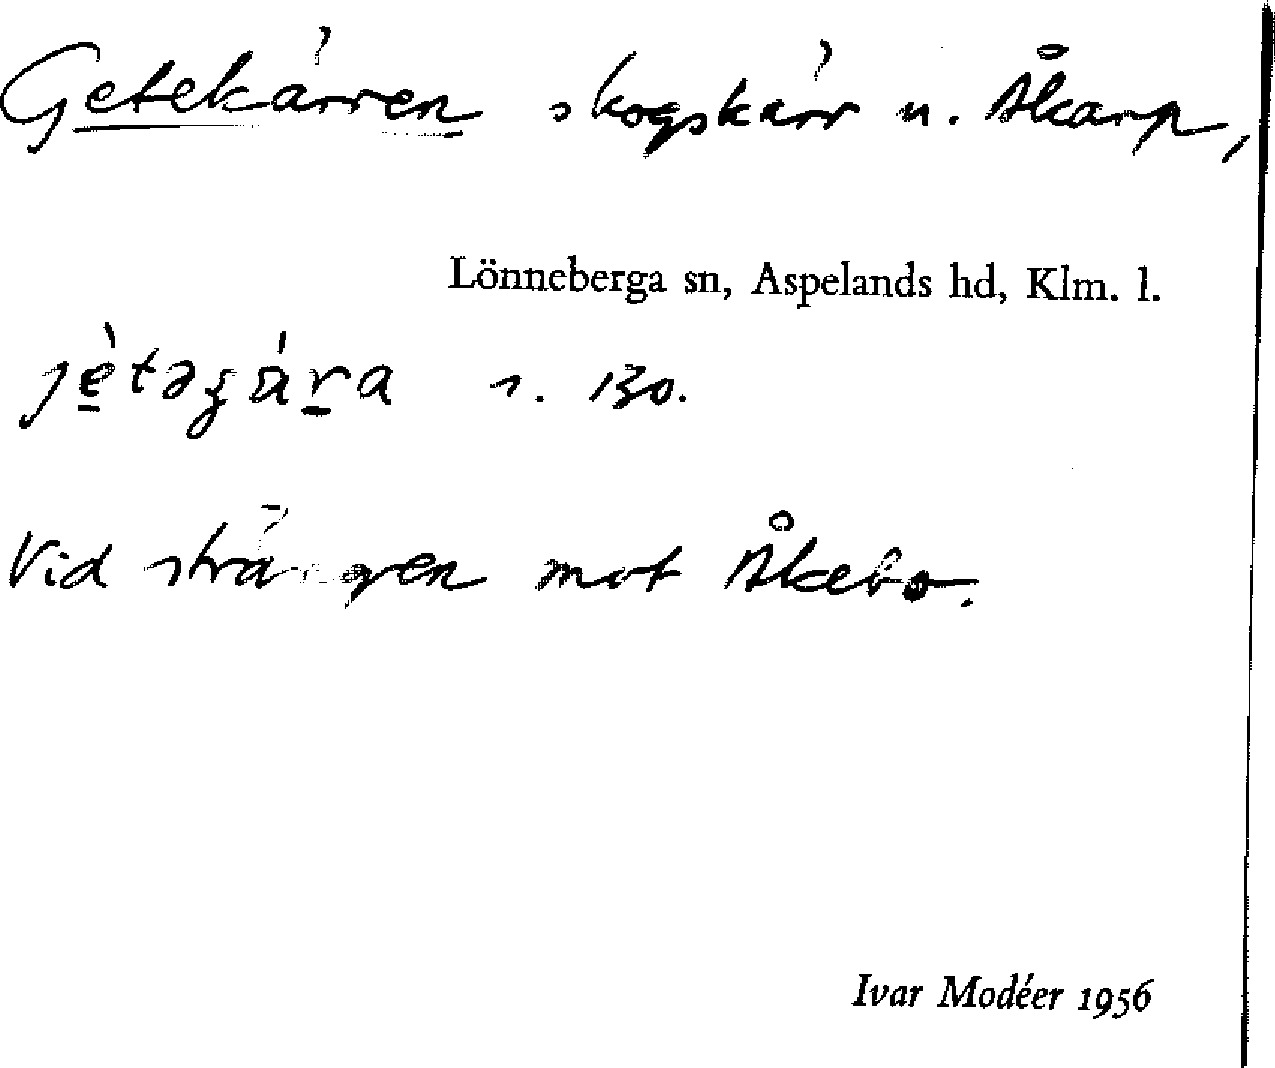 Getekärren skogskärr u. Åkarp,
Lönneberga sn, Aspelands hd, Klm. l.
s. 130.
Vid strängen mot Åkebo.
Ivar Modéer 1956